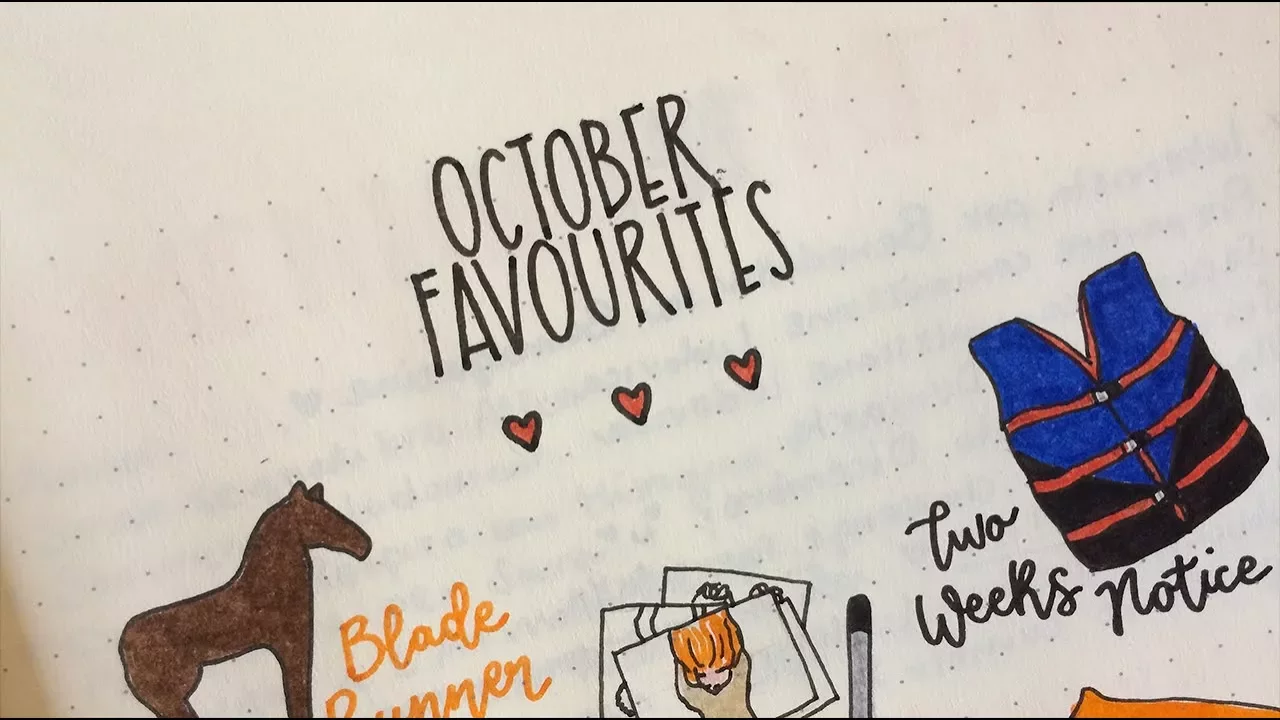 OCTOBER
FAVOURITES
Two
Weeks Notice
Blade
Runner